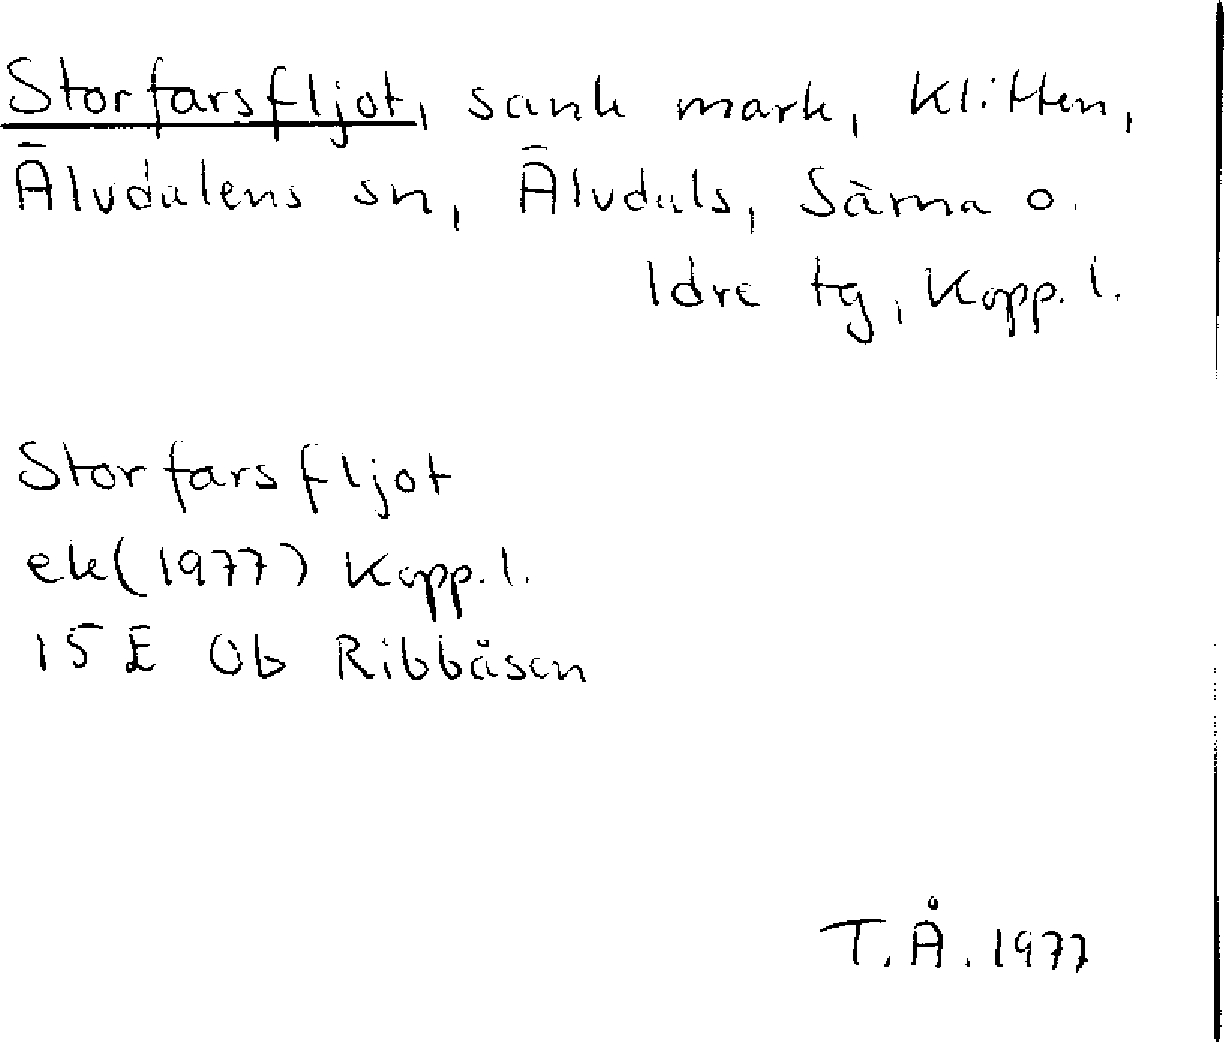 Storfarsfljot, sank mark, Klitten,
Älvdalens sn, Älvdals, Särna o.
Idre tg, Kopp. l.
Storfarsfljot
ek (1977) Kopp. l.
15 E 0b Ribbåsen
T.Å. 1977